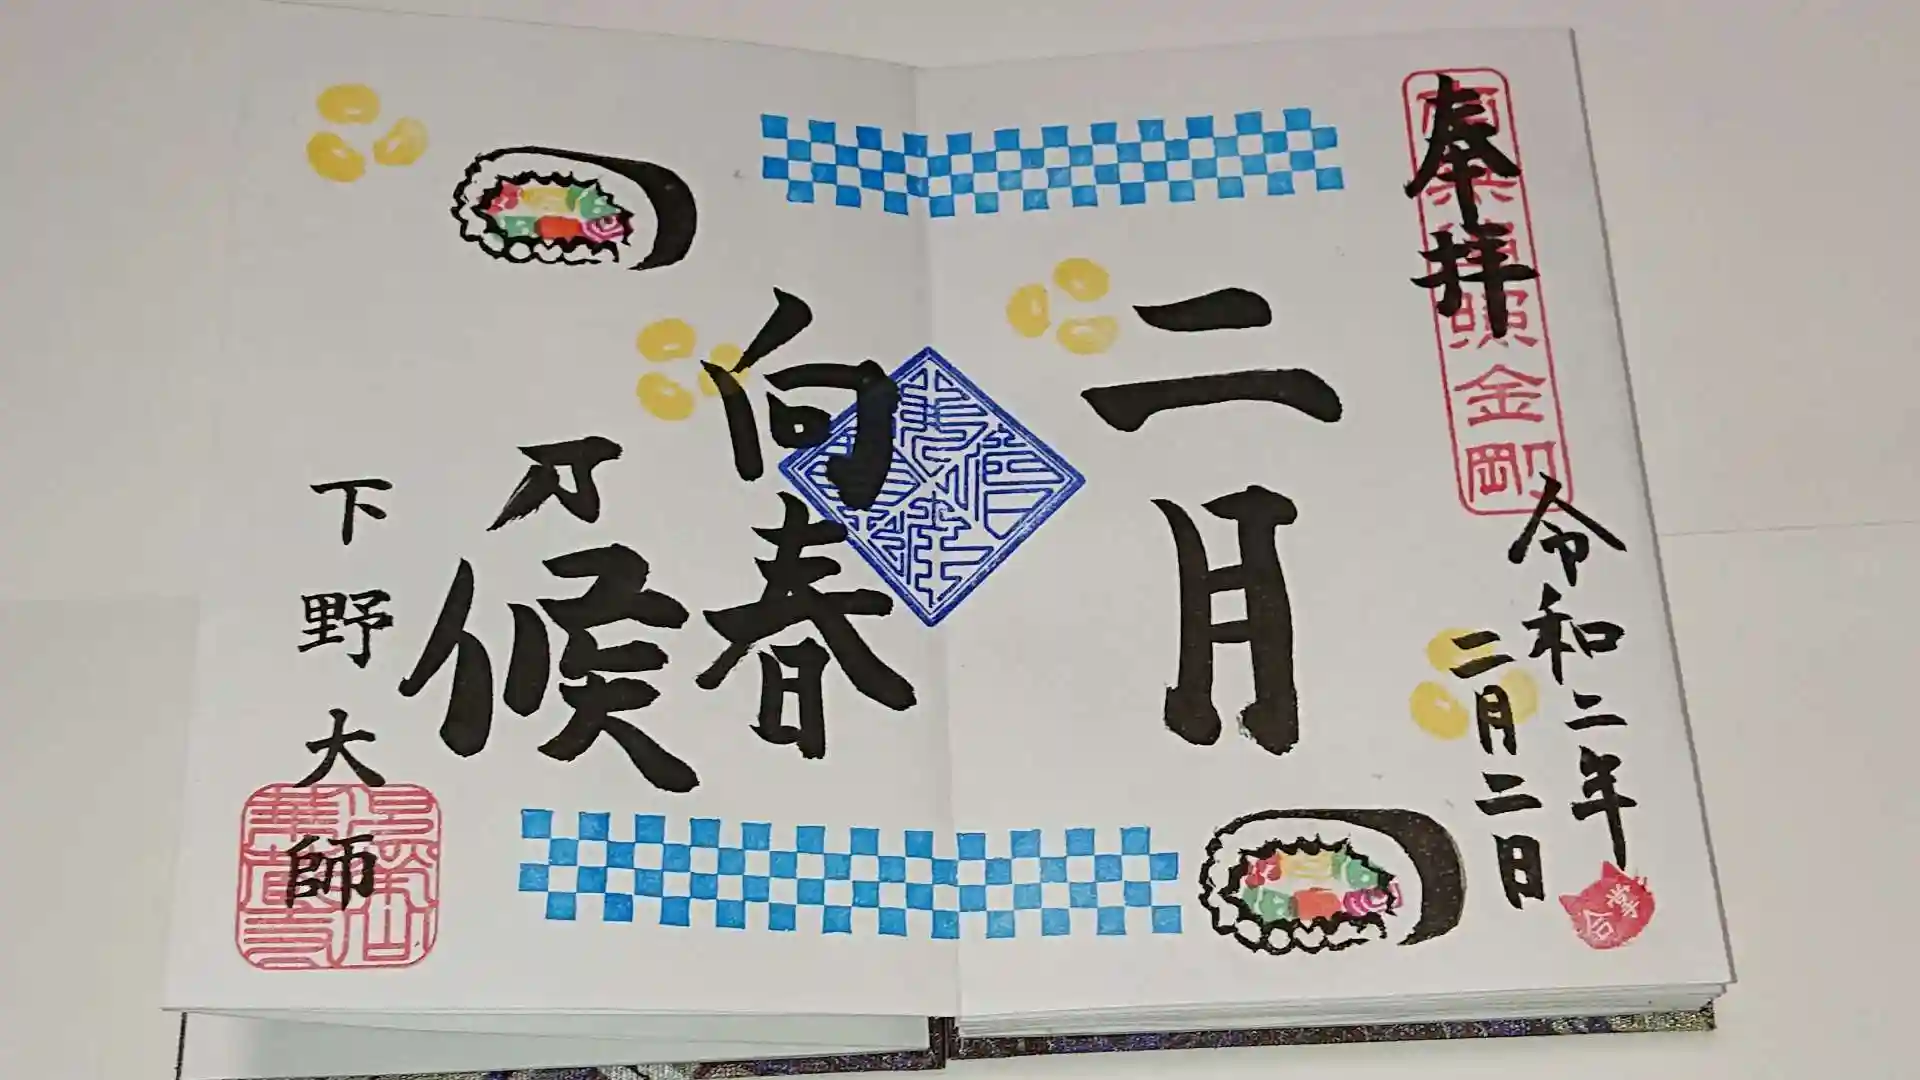 奉拝
南無遍照金剛
令和二年
二月二日
合掌
二月
向春
乃候
下野大師